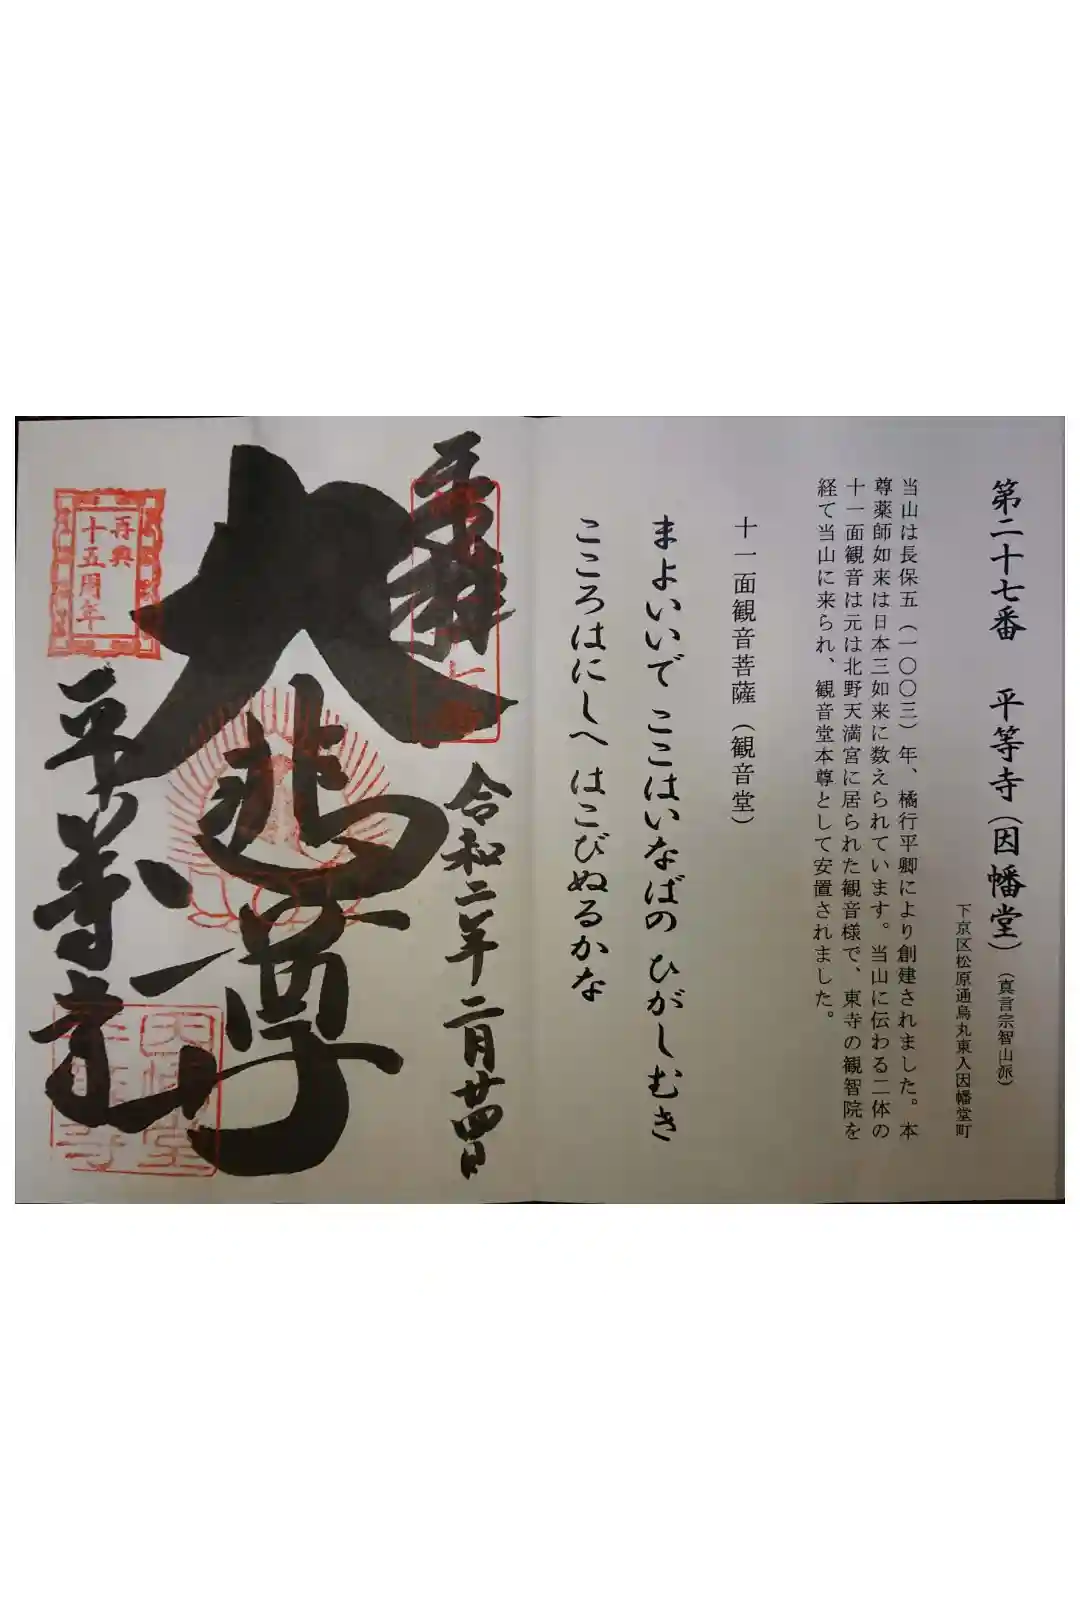 第二十七番 平等寺（因幡堂）（真言宗智山派）
下京区松原通烏丸東入因幡堂町
当山は長保五（一〇〇三）年、橘行平卿により創建されました。本
尊薬師如来は日本三如来に数えられています。当山に伝わる二体の
十一面観音は元は北野天満宮に居られた観音様で、東寺の観智院を
経て当山に来られ、観音堂本尊として安置されました。
十一面観音菩薩（観音堂）
まよいいで ここはいなばの ひがしむき
こころはにしへ はこびぬるかな
奉拝
令和二年 二月廿四日
大悲尊
再興
十五周年
平等寺